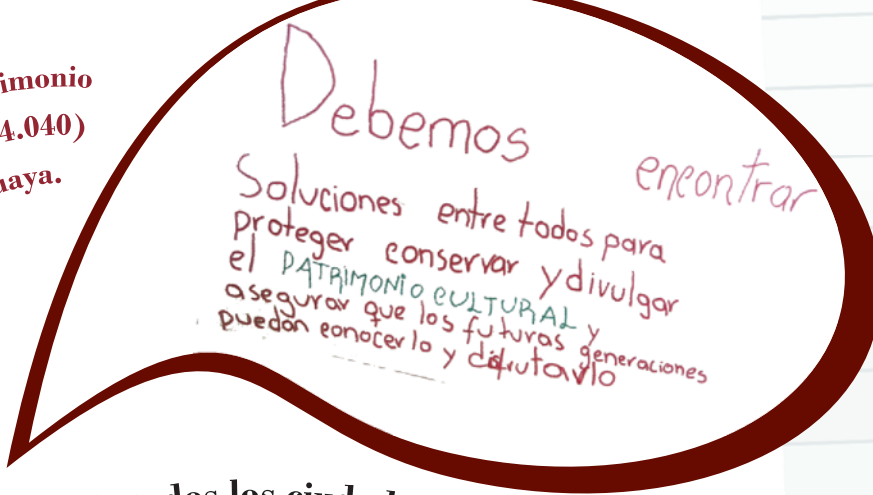 imonio
4.040)
uaya.
Debemos encontrar
Soluciones entre todos para
proteger conservar y divulgar
el PATRIMONiO CULTURAL y
asegurar que los futuras generaciones
puedan conocerlo y disfrutarlo
los